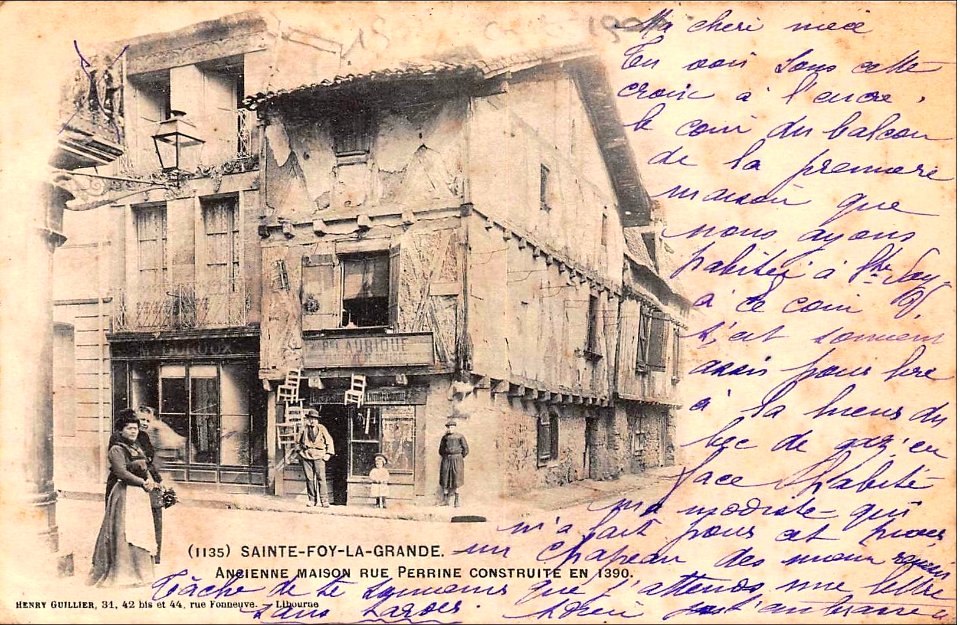 Ma cheri
Tu vois sous cette
croix à l'encre,
le coin du balcon
de la premiere
maison que
nous ayons
habitée à Ste Foy
à ce coin
c'est souvent
assis pour lire
à la lueur du
bec de gaz, en
face habite
ma modiste qui
m'a fait pour cet hiver
un chapeau des
Tâche de te que j'attends une lettre
sans tarder. Adieu
PLAURIQUE
(1135) SAINTE-FOY-LA-GRANDE.
ANCIENNE MAISON RUE PERRINE CONSTRUITE EN 1390.
HENRY GUILLIER, 31, 42 bis et 44, rue Fonneuve. — Libourne